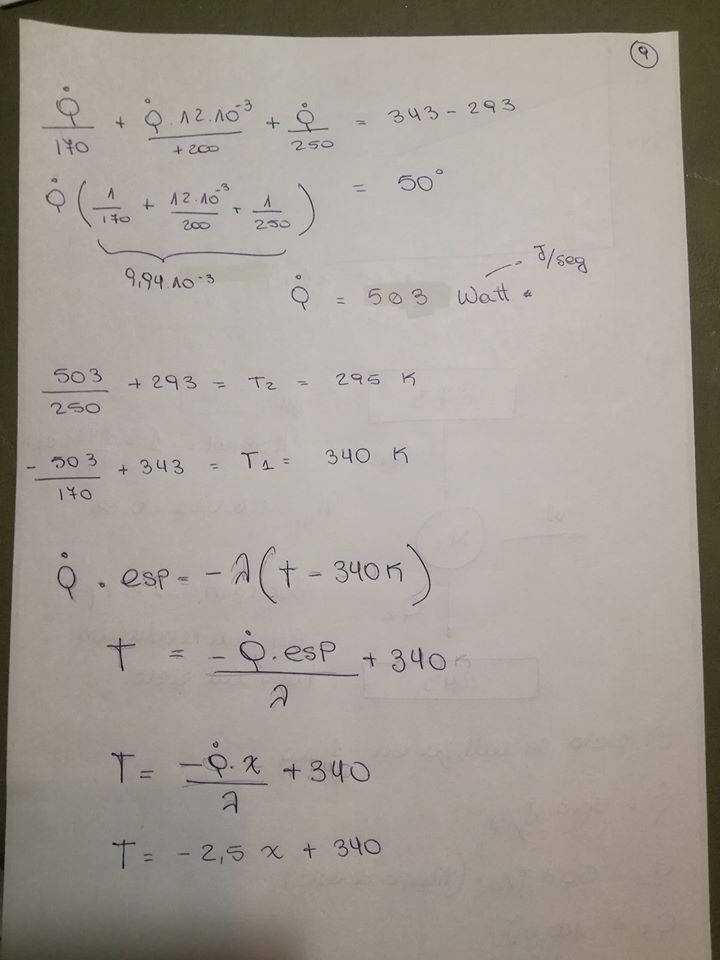 9
Q̇/170 + Q̇·12·10⁻³/+200 + Q̇/250 = 343 - 293
Q̇ (1/170 + 12·10⁻³/200 + 1/250) = 50°
9,94·10⁻³
J/seg
Q̇ = 503 Watt
503/250 + 293 = T₂ = 295 K
- 503/170 + 343 = T₁ = 340 K
Q̇ · esp = -λ(T - 340K)
T = -Q̇·esp/λ + 340 K
T = -Q̇·x/λ + 340
T = -2,5 x + 340